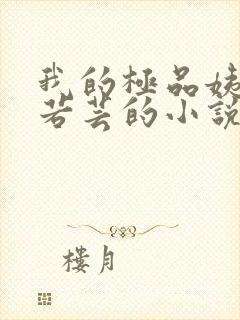 我的極品姨
若芸的小說
樓月